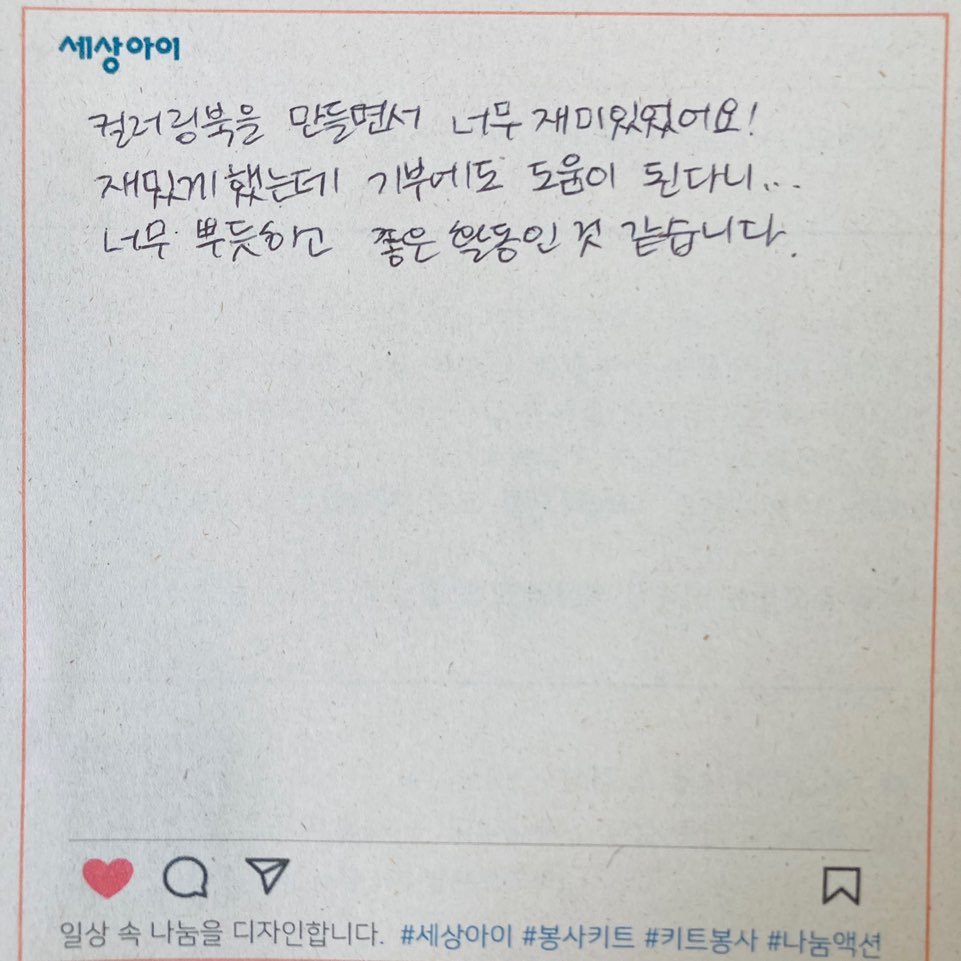 세상아이
컬러링북을 만들면서 너무 재미있었어요!
재밌게 했는데 기부에도 도움이 된다니...
너무 뿌듯하고 좋은 활동인 것 같습니다.
일상 속 나눔을 디자인합니다. #세상아이 #봉사키트 #키트봉사 #나눔액션